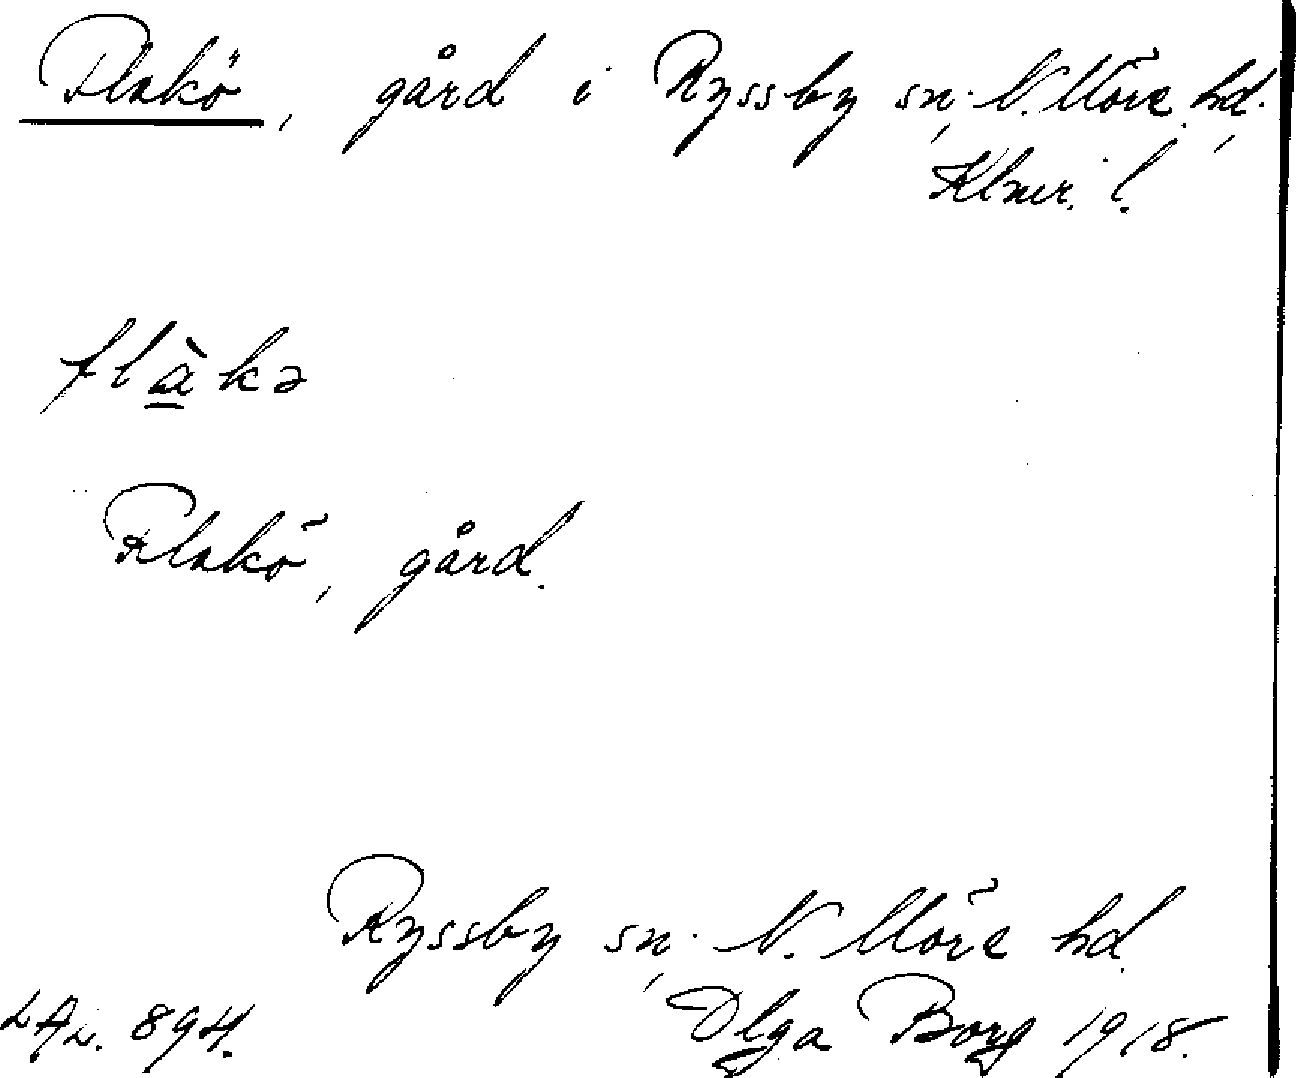 Flakö, gård i Ryssby sn, N. Möre hd.,
Klmr. l.
flàkə
Flakö, gård.
Ryssby sn, N. Möre hd.
LAL. 894. Olga Borg 1918.